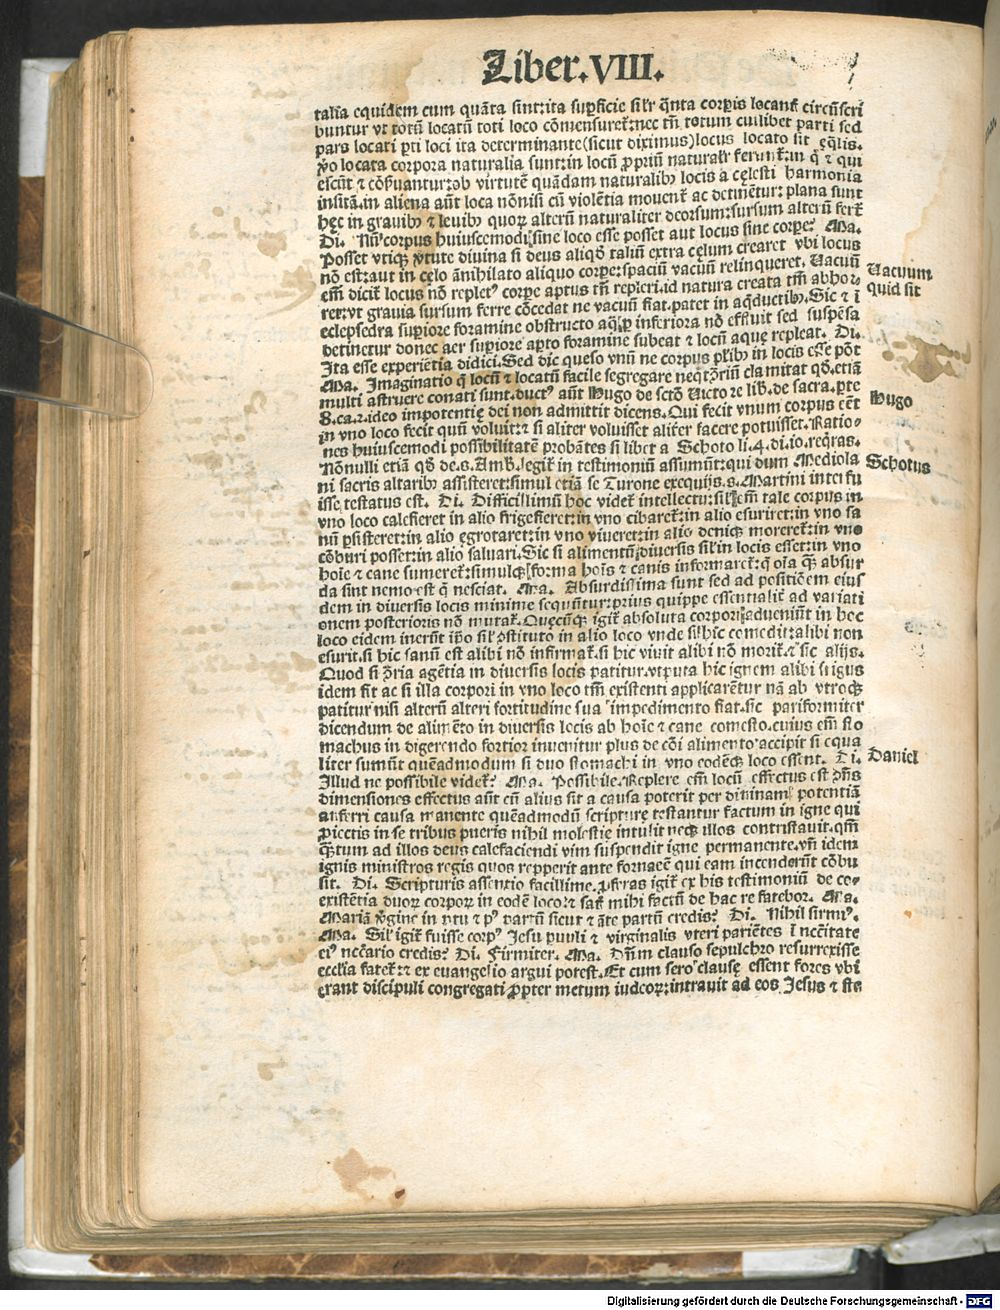 Liber.VIII.
talia equidem cum quāta sint:ita suꝑficie silr qͣnta corꝑis locant circūscri
buntur vt totū locatū toti loco cōmensuret:nec tn̄ totum cuilibet parti sed
pars locati ꝑti loci ita determinante(sicut diximus)locus locato sit ęq̄lis.
ꝟo locata corpora naturalia sunt:in locū ꝓpriū naturalr feruntꝛ:in q̊ ⁊ qui
escūt ⁊ cōẜuantur:ob virtutē quādam naturalibꝫ locis a cęlesti harmonia
insitā.in aliena aūt loca nōnisi cū violētia mouentꝛ ac detinētur: plana sunt
hęc in grauibꝫ ⁊ leuibꝫ quoꝝ alterū naturaliter deorsum:sursum alterū fertꝛ
Di. Nūꝗ corpus huiuscemodi sine loco esse posset aut locus sine corꝑe? Ma.
Posset vtiqꝫ ꝟtute diuina si deus aliqd̄ taliū extra cęlum crearet vbi locus
nō est:aut in cęlo ānihilato aliquo corꝑe:spaciū vacuū relinqueret. Vacuū
em̄ dicit locus nō repletꝰ corꝑe aptus tn̄ repleri:id natura creata tm̄ abhor-
ret:vt grauia sursum ferre cōcedat ne vacuū fiat.patet in aq̄ductibꝫ. Sic ⁊ ī
eclepsedra suꝑiore foramine obstructo aq̄ ꝑ inferiora nō effluit sed suspēsa
detinetur donec aer suꝑiore aꝑto foramine subeat ⁊ locū aquę repleat. Di.
Ita esse experiētia didici.Sed dic queso vnū ne corpus pl̄ibꝫ in locis esse pōt
Ma. Imaginatio q̄ locū ⁊ locatū facile segregare neqt ꝯ̄triū clamitat qd̄.etiā
multi astruere conati sunt.ductꝰ aūt Hugo de sctō Victore lib̄.de sacra.ꝑte
8.ca.2.ideo impotentię dei non admittit dicens.Qui fecit vnum corpus eēt
in vno loco fecit quū voluit:⁊ si aliter voluisset aliter facere potuisset.Ratio-
nes huiuscemodi possibilitatē probātes si libet a Schoto li.4.di.10.reqras.
Nōnulli etiā qd̄ de.s.Amb̄.legit in testimoniū assumūt:qui dum Mediola
ni sacris altaribꝫ assisteret:simul etiā se Turone exequijs.s. Martini interfu
isse testatus est. Di. Difficillimū hoc videt intellectu:sil em̄ tale corpus in
vno loco calefieret in alio frigefieret:in vno cibaret:in alio esuriret:in vno sa
nū ꝑsisteret:in alio ęgrotaret:in vno viueret:in alio deniqꝫ moreret:in vno
cōburi posset:in alio saluari.Sic si alimentū diuersis sil in locis esset:in vno
hoīe ⁊ cane sumeret:simulqꝫ forma hoīs ⁊ canis informaret:q̄ oīa qͣꝫ absur
da sint nemo est q̄ nesciat. Ma. Absurdissima sunt sed ad positiōem eius
dem in diuersis locis minime sequūtur:prius quippe essentialit ad variati
onem posterioris nō mutat. Quęcūqꝫ igit absoluta corpori adueniūt in hoc
loco eidem inerūt ip̄o sil ꝯstituto in alio loco vnde si hic comedit:alibi non
esurit.si hic sanū est alibi nō infirmat.si hic viuit alibi nō morit.⁊ sic alijs.
Quod si ꝯ̄ria agētia in diuersis locis patitur.vtputa hic ignem alibi frigus
idem fit ac si illa corpori in vno loco tm̄ existenti applicarētur nā ab vtroqꝫ
patitur nisi alterū alteri fortitudine sua impedimento fiat.sic pariformiter
dicendum de alimēto in diuersis locis ab hoīe ⁊ cane comesto.cuius em̄ sto
machus in digerendo fortior inuenitur plus de cōi alimento accipit si equa
liter sumūt quēadmodum si duo stomachi in vno eodēqꝫ loco essent. Di.
Illud ne possibile videt? Ma. Possibile.Replere em̄ locū effectus est
dimensiones effectus aūt cū alius sit a causa poterit per diuinam potentiā
auferri causa manente quēadmodū scripturę testantur factum in igne qui
ꝓiectis in se tribus pueris nihil molestie intulit neqꝫ illos contristauit.qm̄
qͣꝫtum ad illos deus calefaciendi vim suspendit igne permanente.vn̄ idem
ignis ministros regis quos repperit ante fornacē qui eam incenderūt cōbu
sit. Di. Scripturis assentio facillime.ꝓferas igit ex his testimoniū de co-
existētia duoꝝ corpoꝝ in eodē loco:⁊ sat mihi factū de hac re fatebor. Ma.
Mariā ꝟgine in ptu ⁊ pꝰ partū sicut ⁊ āte partū credis? Di. Nihil firmiꝰ.
Ma. Sil igit fuisse corpꝰ Jesu pueli ⁊ virginalis vteri pariētes ī nec̄itate
eiꝰ nec̄ario credis? Di. Firmiter. Ma. Dn̄m clauso sepulchro resurrexisse
ecclia fatet:⁊ ex euangelio argui potest.Et cum sero clausę essent fores vbi
erant discipuli congregati ꝓpter metum iudeoꝝ:intrauit ad eos Jesus ⁊ ste
Vacuum
quid sit
Hugo
Schotus
Daniel
Digitalisierung gefördert durch die Deutsche Forschungsgemeinschaft - DFG